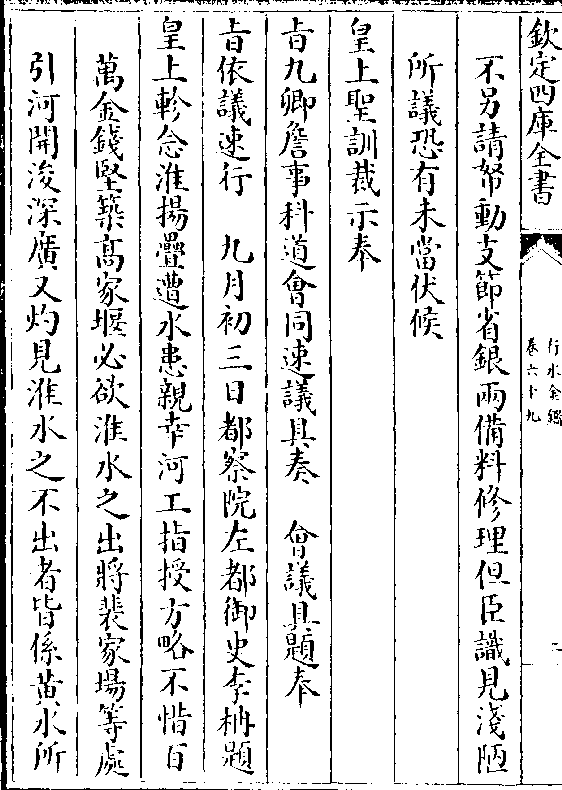 欽定四庫全書
行水金鑑
卷六十九
不另請帑動支節省銀兩備料修理但臣識見淺陋
所議恐有未當伏候
皇上聖訓裁示奉
旨九卿詹事科道會同速議具奏　會議具題奉
旨依議速行　九月初三日都察院左都御史李柟題
皇上軫念淮揚疊遭水患親幸河工指授方略不惜百
萬金錢堅築髙家堰必欲淮水之出將裴家場等處
引河開浚深廣又灼見淮水之不出者皆係黄水所